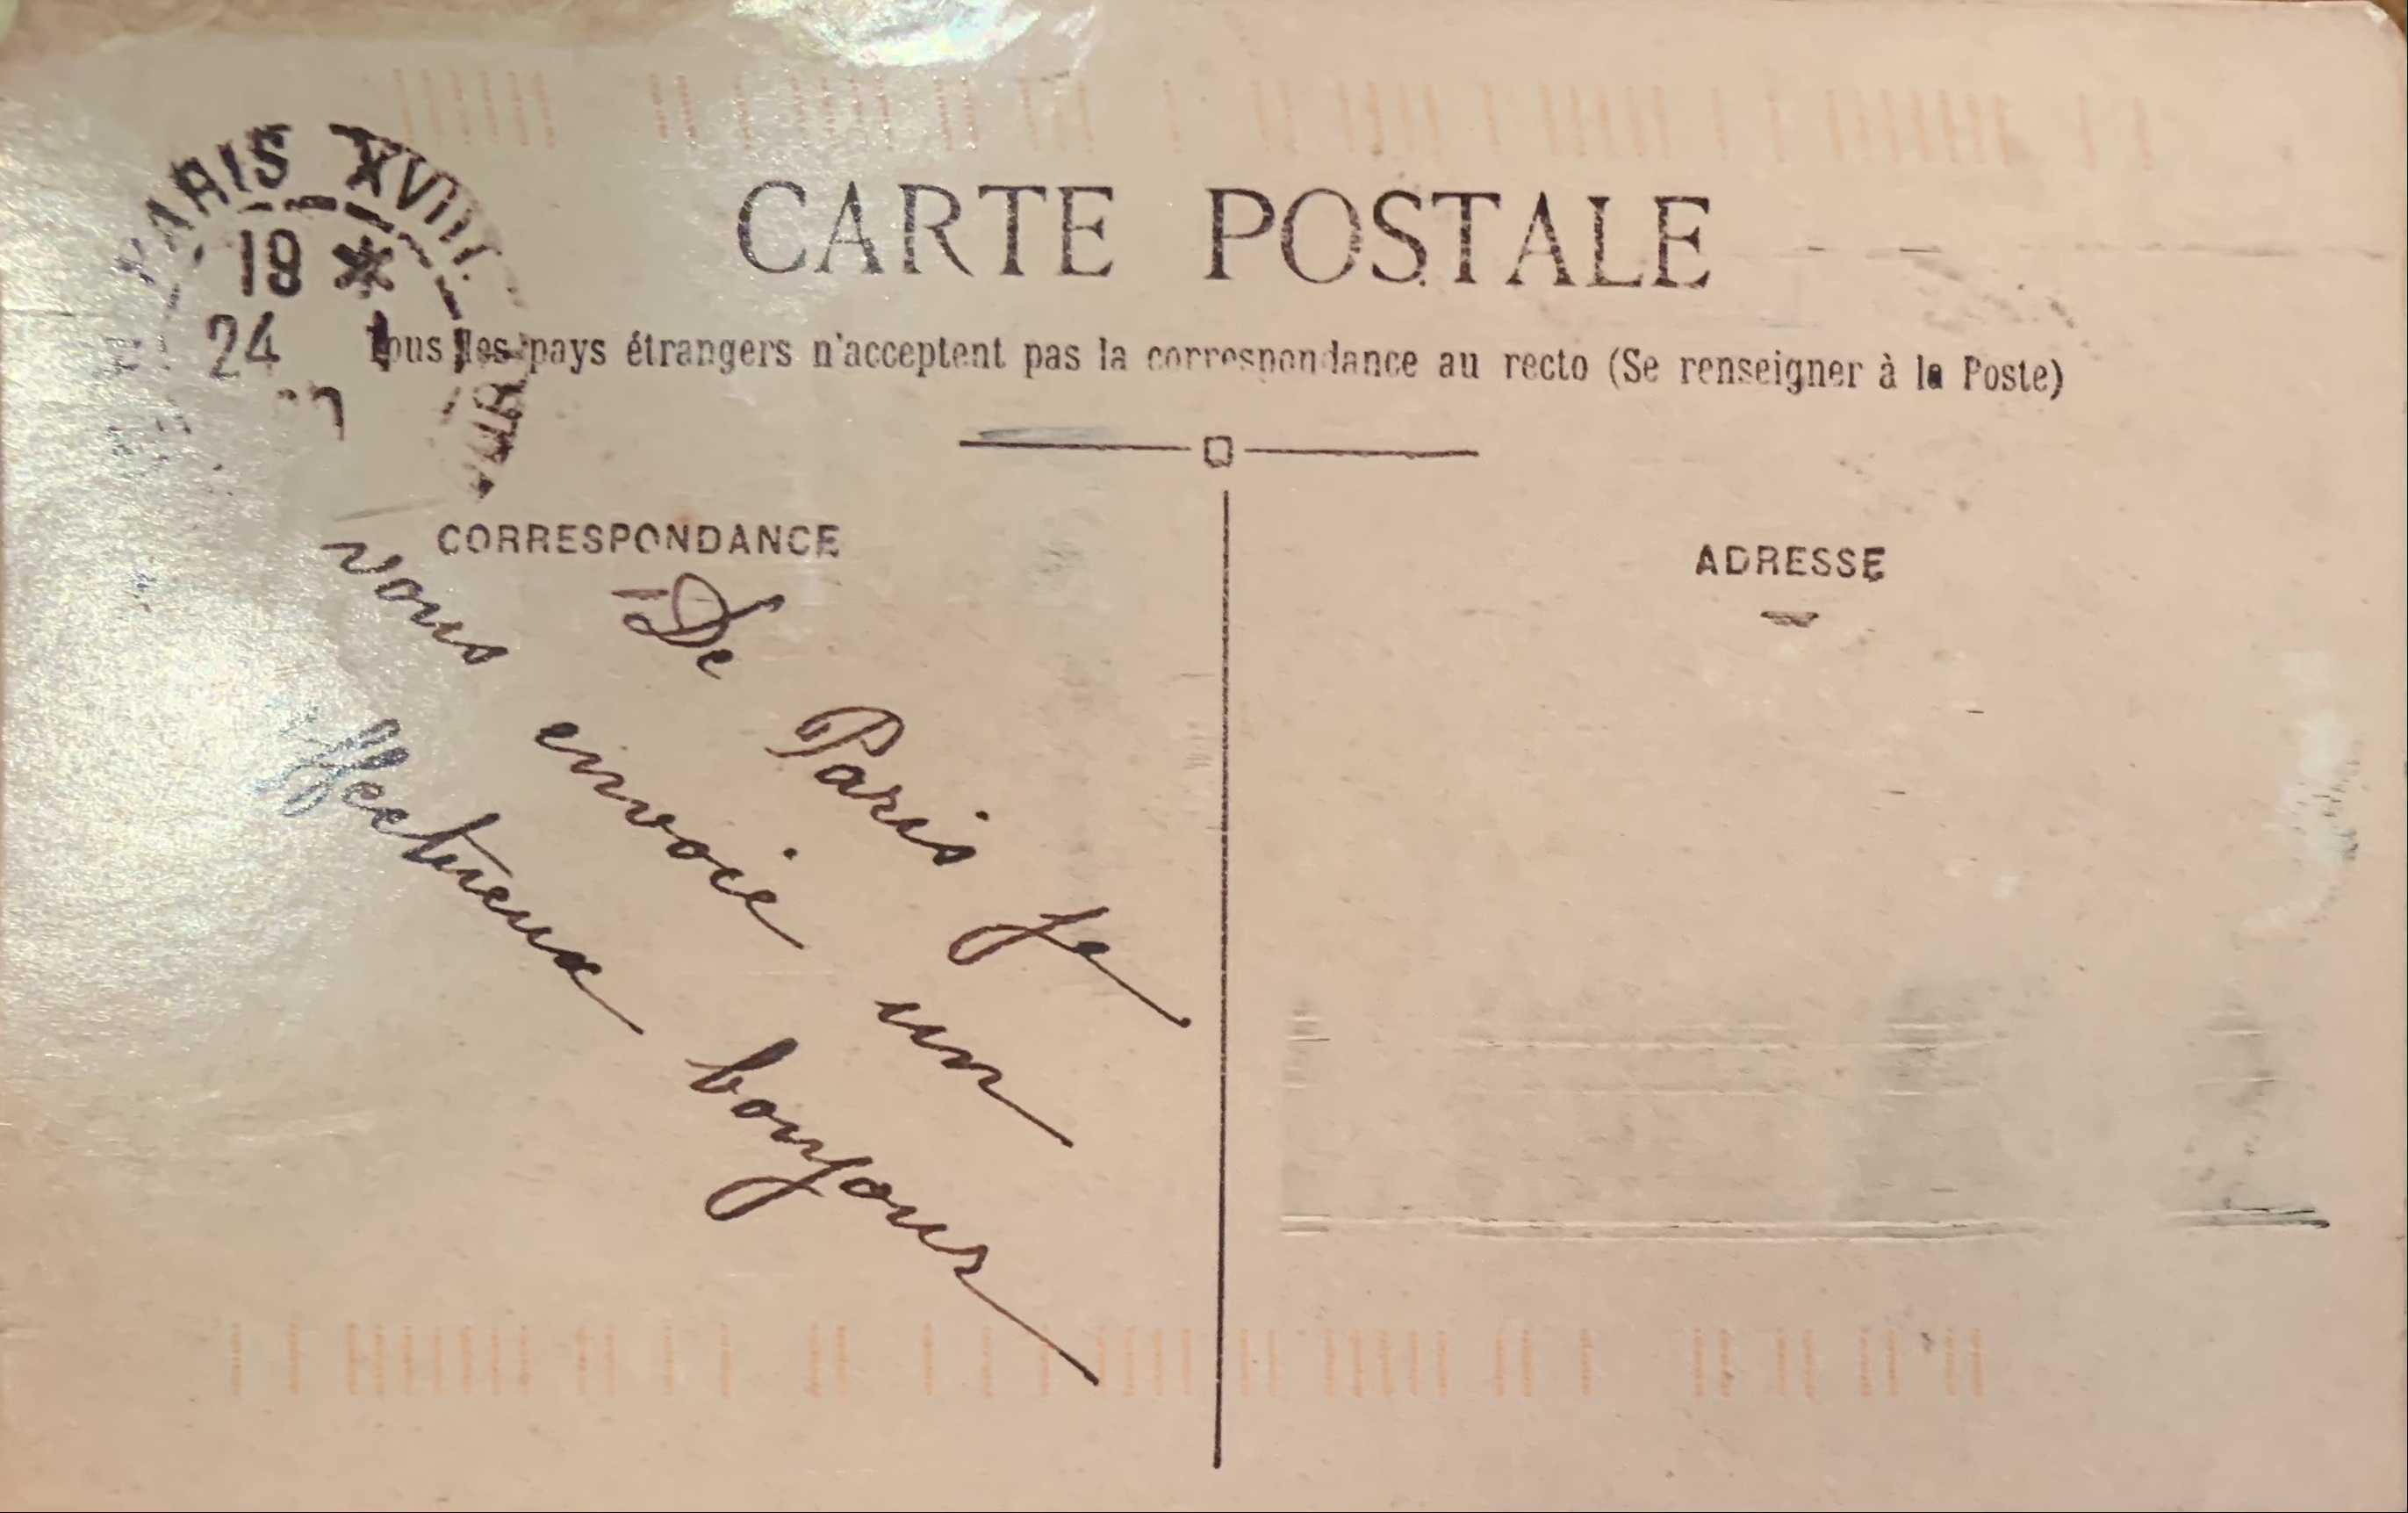 PARIS XVIII
18 *
24
CARTE POSTALE
Tous les pays étrangers n'acceptent pas la correspondance au recto (Se renseigner à la Poste)
CORRESPONDANCE
De Paris je
vous envoie un
affectueux bonjour
ADRESSE